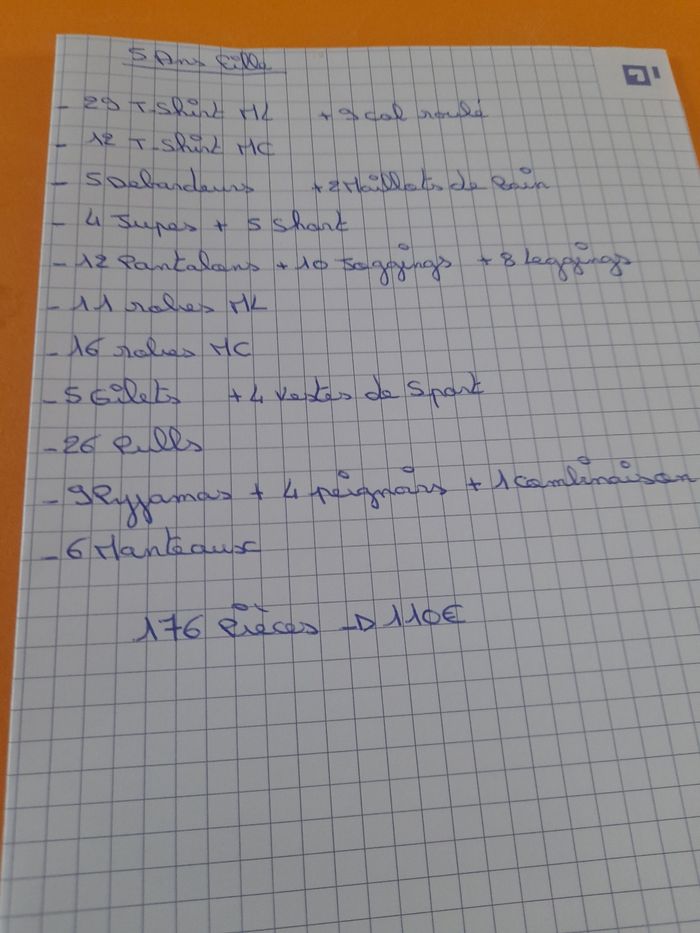 5 Ans fille
- 29 T-Shirt ML + 9 col roulé
- 12 T-Shirt MC
- 5 Debardeurs + 2 Maillots de Bain
- 4 Jupes + 5 Short
- 12 Pantalons + 10 Joggings + 8 Leggings
- 11 robes ML
- 16 robes MC
- 5 Gilets + 4 Vestes de Sport
- 26 Pulls
- 9 Pyjamas + 4 peignoirs + 1 Combinaison
- 6 Manteaux
176 Pièces -D 110€